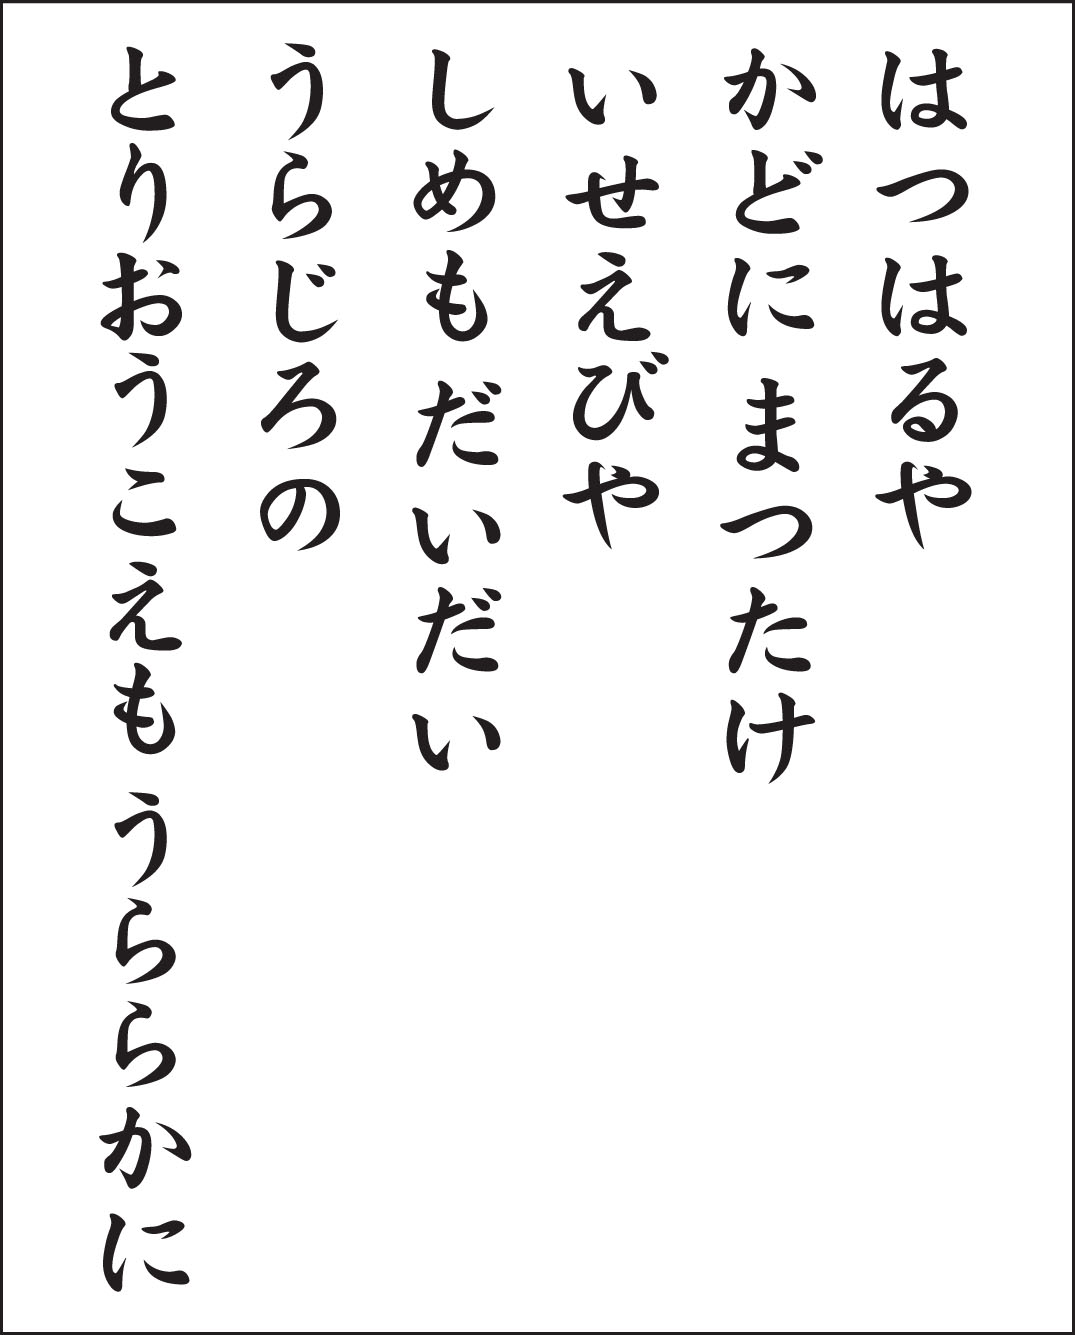 はつはるや
かどに まつたけ
いせえびや
しめも だいだい
うらじろの
とりおうこえも うららかに